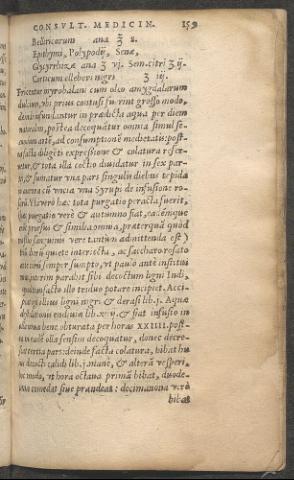 CONSVLT. MEDICIN. 159
Belliricorum ana ℥ 2.
Epithymi, Polypodij, Senæ,
Glycyrrhizæ ana ℥ vj. Sem. citri ℥ ij.
Corticum ellebori nigri ℥ iij.
Fricentur myrobalani cum oleo amygdalarum
dulcium, vbi prius contusi fuerint grosso modo,
deinde infundantur in prædicta aqua per diem
naturalem, postea decoquātur omnia simul se-
cundum artē, ad consumptionē medietatis: post-
ea facta diligēti expressione & colatura reser-
uetur, & tota illa collectio diuidatur in sex par-
tes, & sumatur vna pars singulis diebus tepida
in aurora cū vncia vna Syrupi de infusione ro-
sarū. Vt vero hæc tota purgatio peracta fuerit,
purgatio verè & autumno fiat, eadémque
prorsus & similia omnia, præterquā quòd
missio sanguinis vere tantùm admittenda est)
triū dierū quiete interiecta, ac saccharo rosato
simper sumpto, vt paulò antè instituti
parim parabit sibi decoctum ligni Indi,
quo isto illo triduo potare incipiet. Acci-
piat illius ligni nigri & derasi lib. j. Aquæ
endiuiæ lib. x. ij. & fiat infusio in
bene obturata per horas XXIIII. post-
ea olla sensim decoquatur, donec decre-
scat tertia pars: deinde facta colatura, bibat hu-
ius decocti calidi lib. j. manè, & alterā vesperi,
hoc modo, vt hora octaua primā bibat, duode-
cima comedat siue prandeat: decimanona verò
bibat